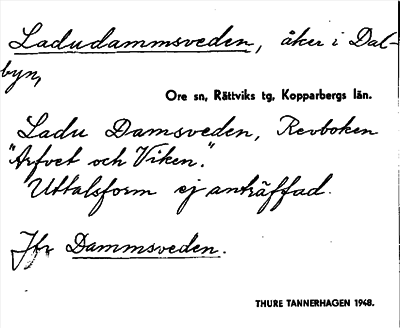 Ladudammsveden, åker i Dal-
byn,
Ore sn, Rättviks tg, Kopparbergs län.
Ladu Damsveden, Revboken
"Arfvet och Viken".
Uttalsform ej anträffad.
Jfr Dammsveden.
THURE TANNERHAGEN 1948.